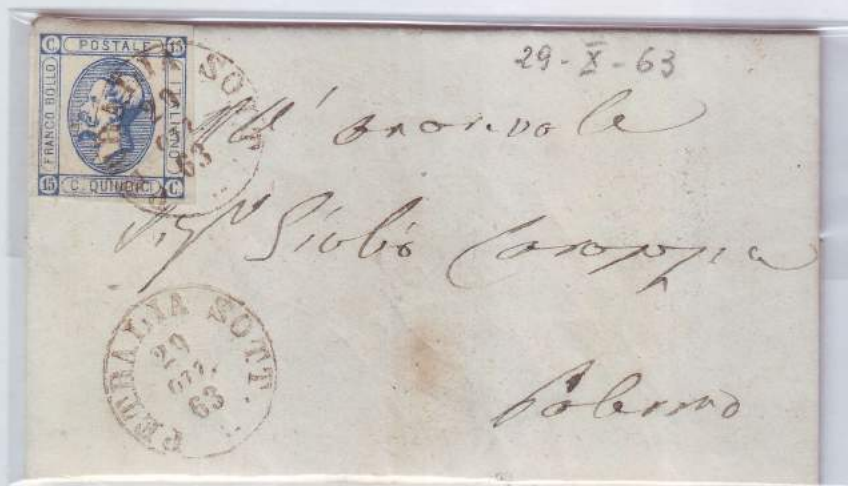 C POSTALE 15
FRANCO BOLLO
ITALIANO
15 C. QUINDICI C
29 - X - 63
All' onorevole
Sig.r Giulio
Palermo
PETRALIA SOTT.
29
OTT.
63